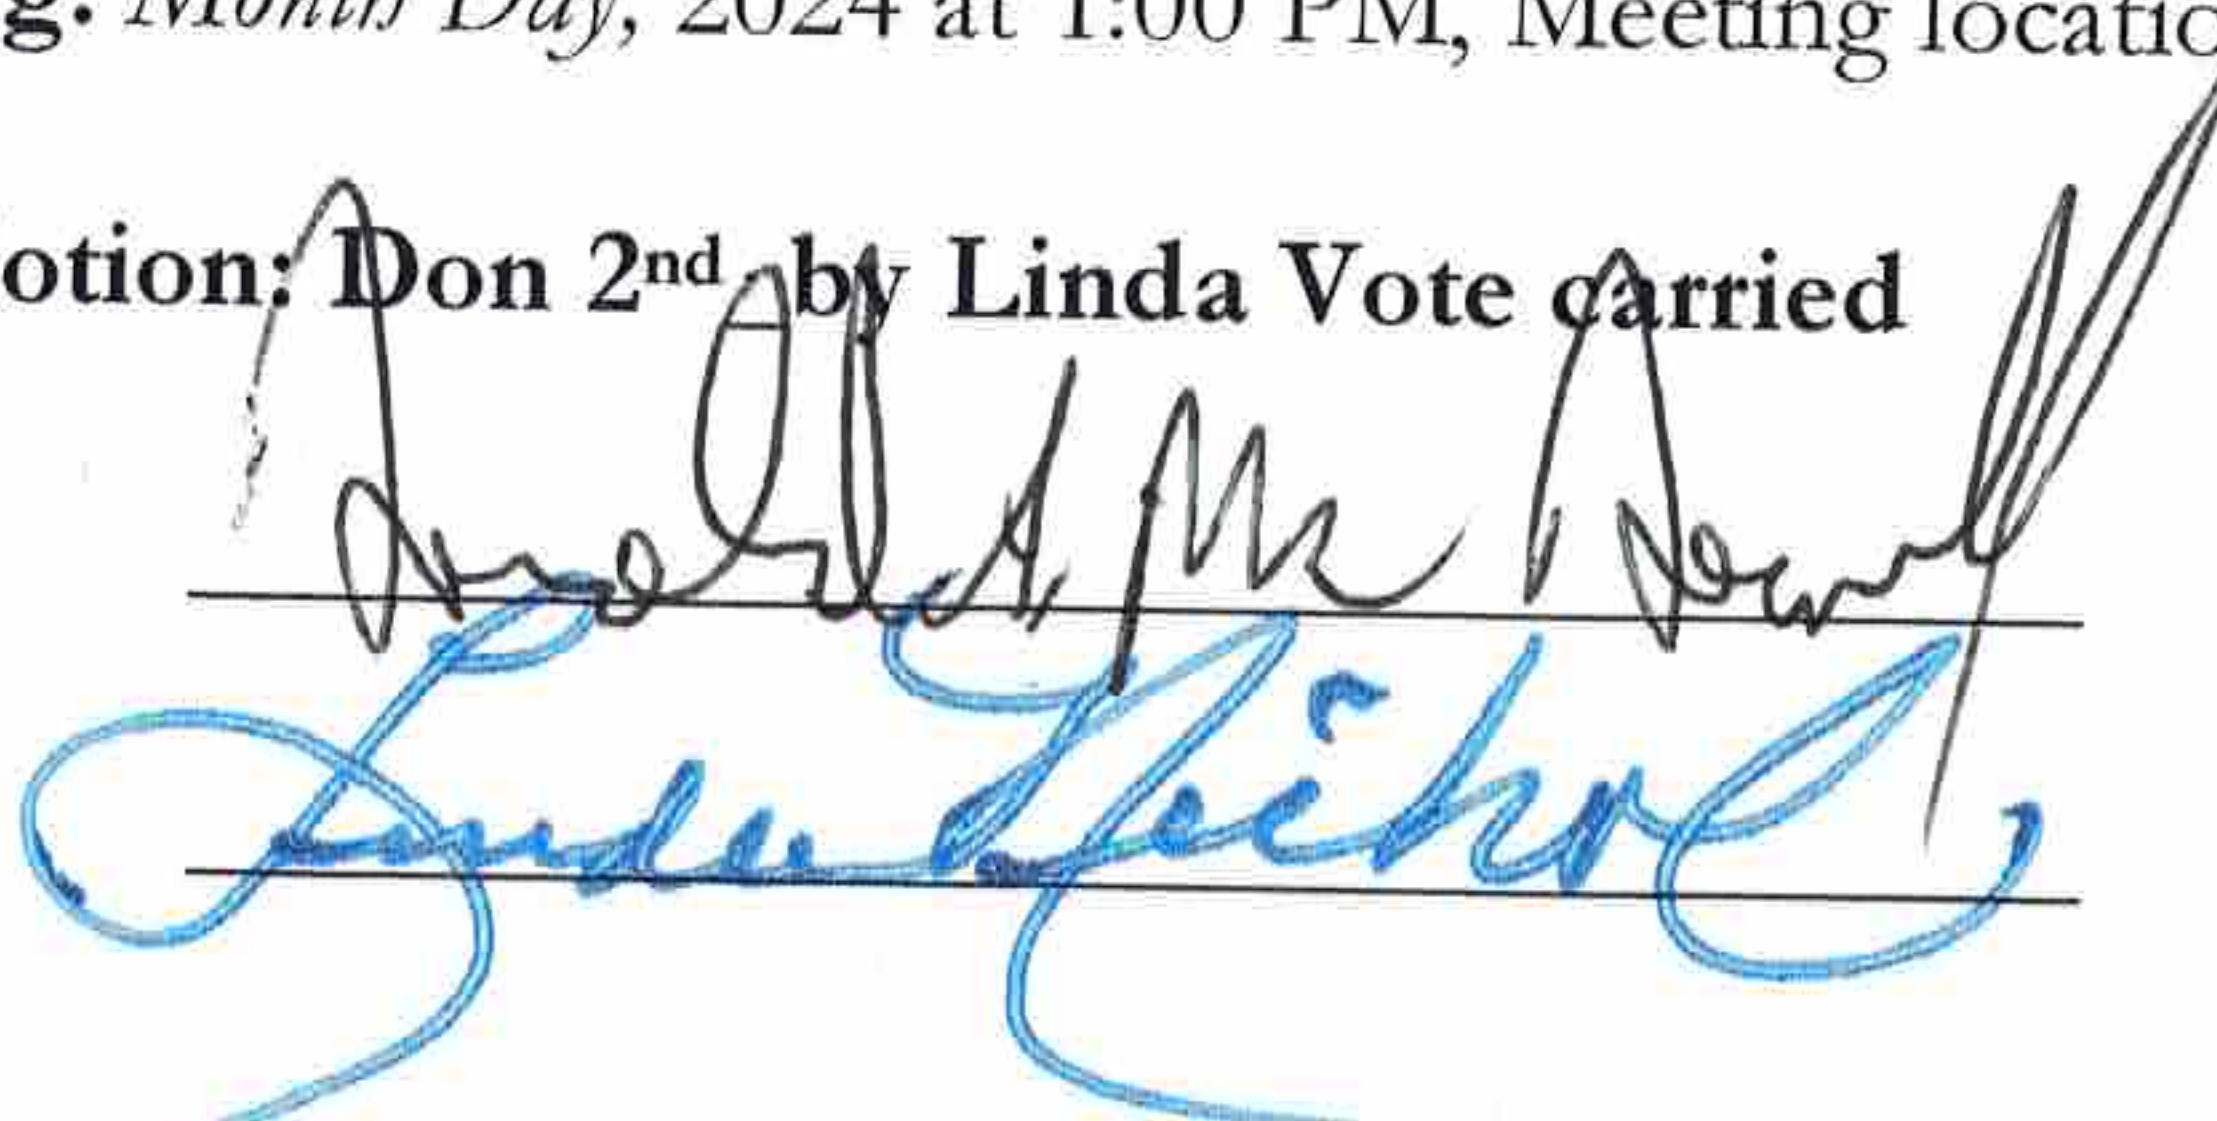 g. Month Day, 2024 at 1:00 PM, Meeting locatio
otion: Don 2nd by Linda Vote carried
Linda Nichol